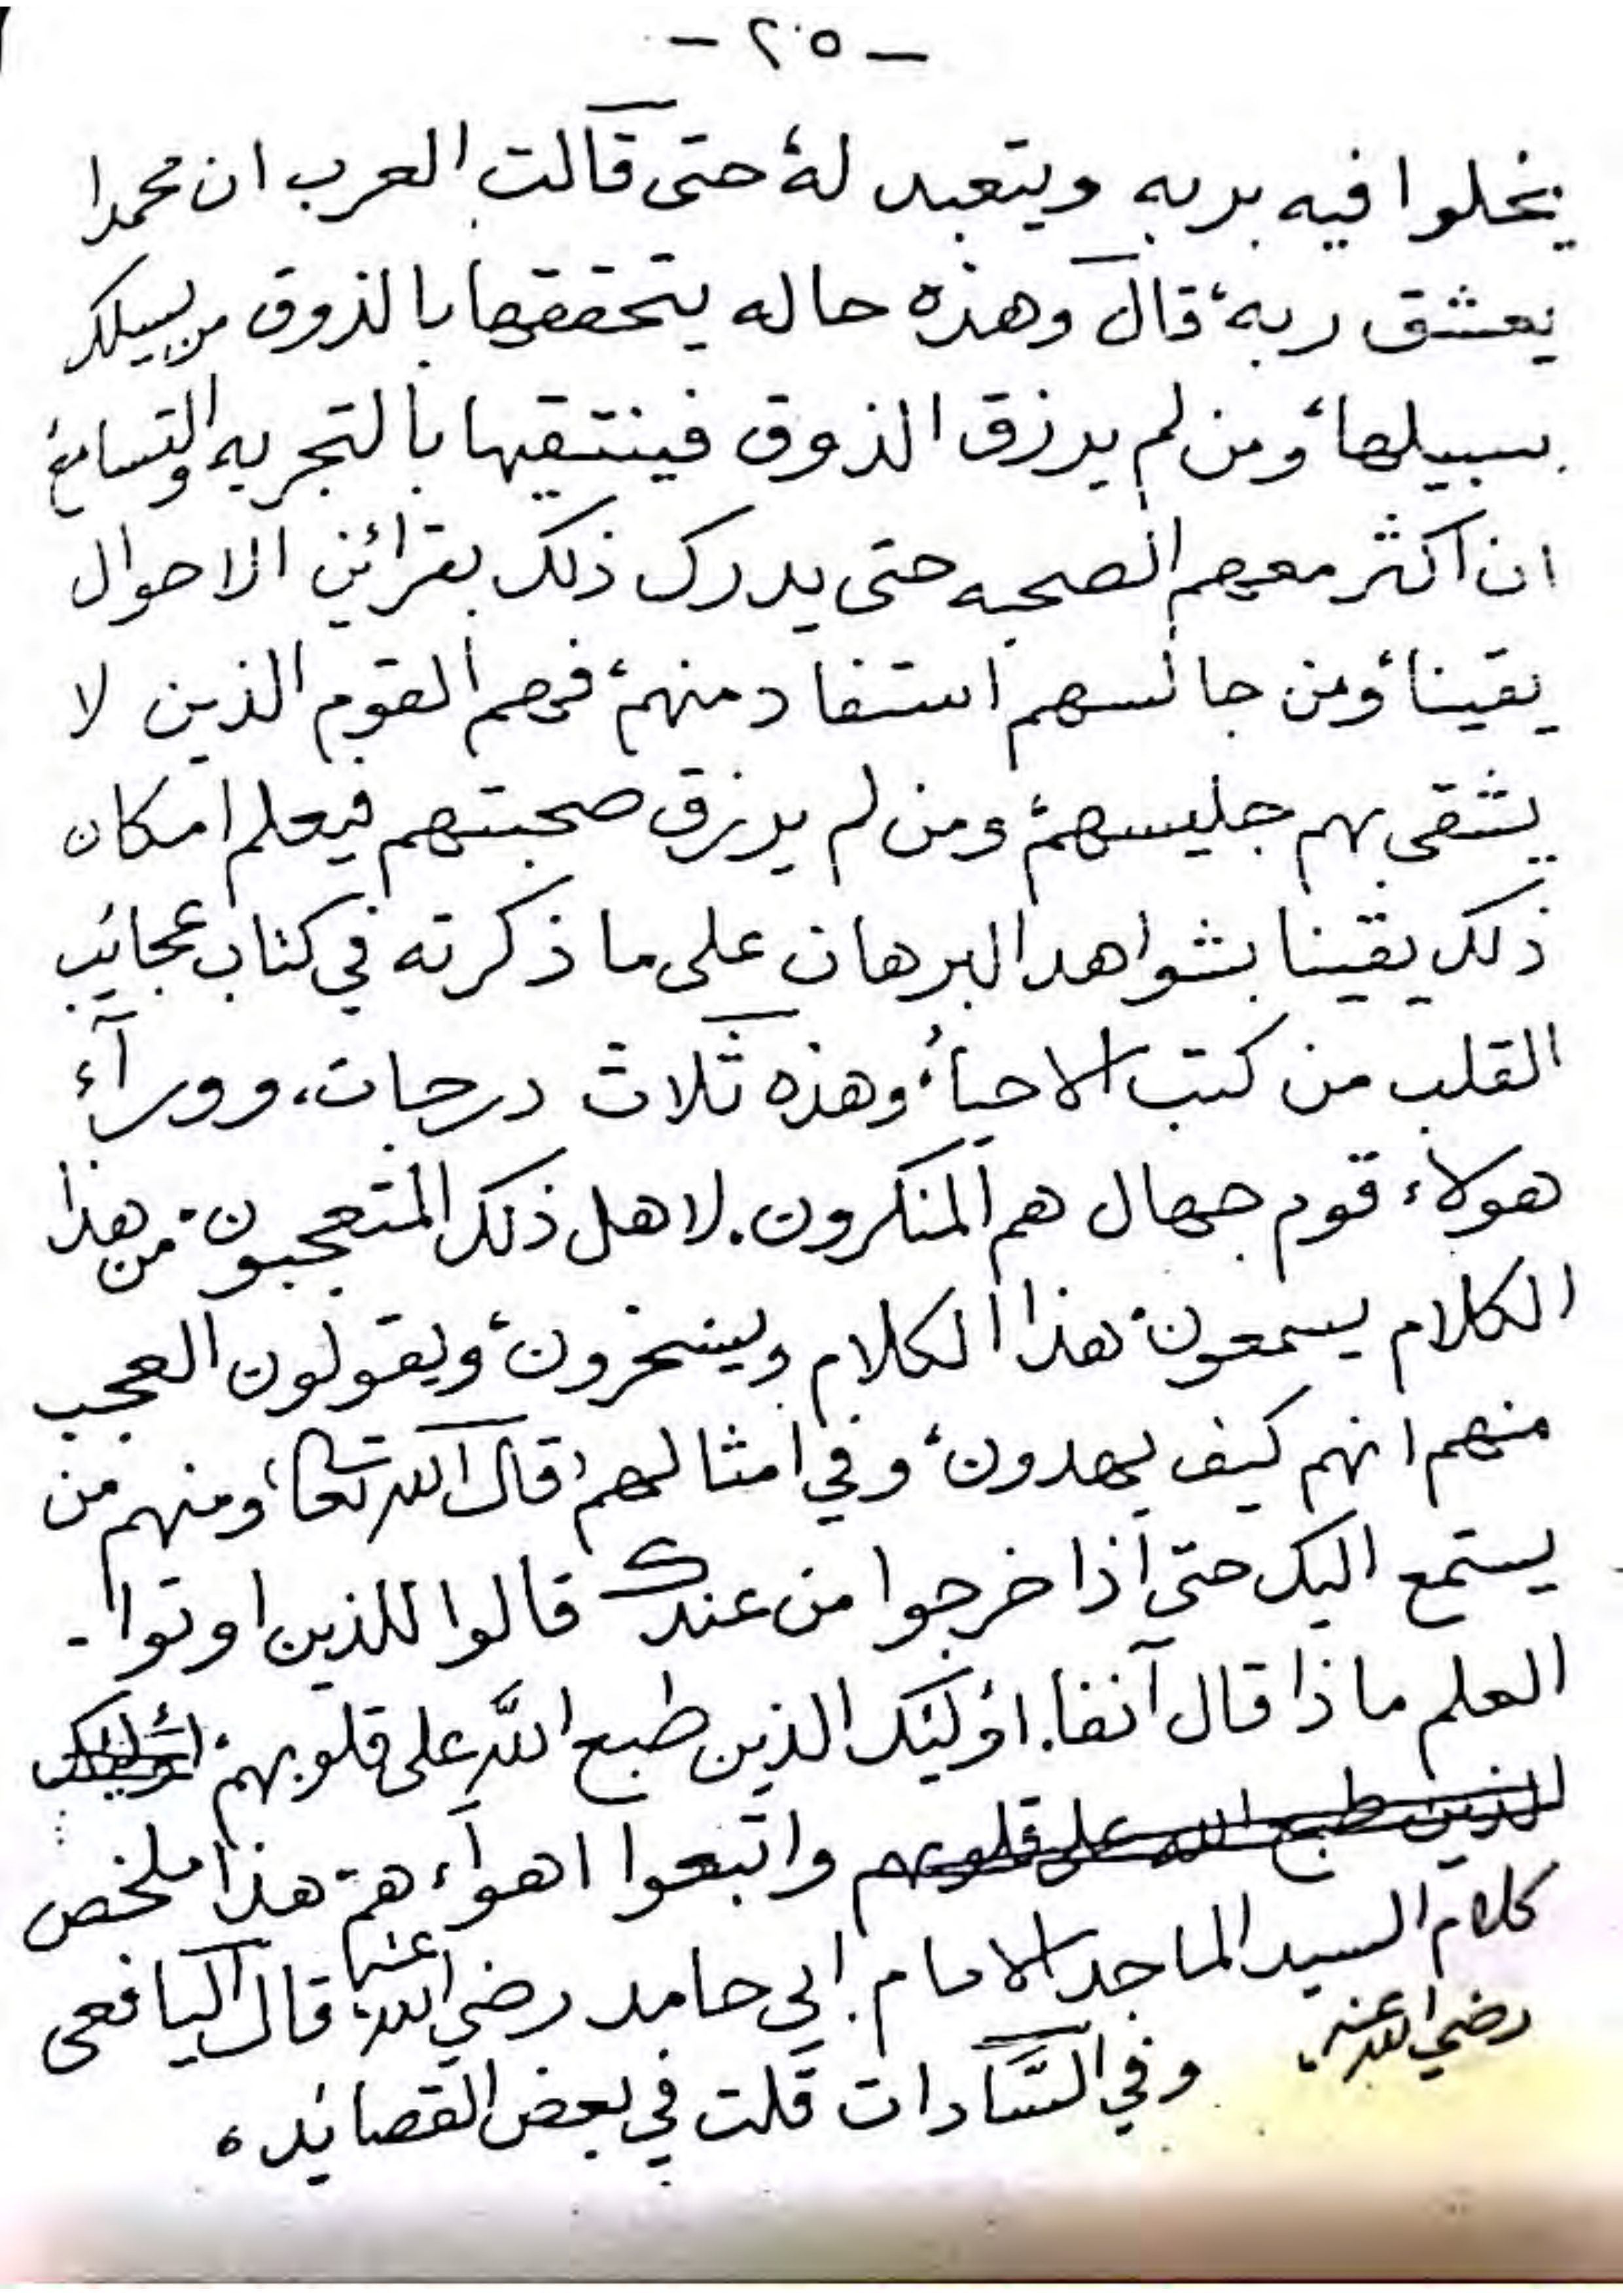 - ٢٠٥ -
يخلوا فيه بربه ويتعبد له، حتى قالت العرب ان محمدا
يعشق ربه، قال وهذه حاله يتحققها بالذوق من يسلك
سبيلها، ومن لم يرزق الذوق فينتقيها بالتجربه والتسامع
ان اكثر معهم الصحبه حتى يدرك ذلك بقرائن الاحوال
يقينا، ومن جالسهم استفاد منهم، فهم القوم الذين لا
يشقى بهم جليسهم، ومن لم يرزق صحبتهم فيعلم امكان
ذلك يقينا بشواهد البرهان على ما ذكرته في كتاب عجائب
القلب من كتب الاحياء، وهذه ثلاث درجات، ووراء
هولاء، قوم جهال هم المنكرون. لاهل ذلك المتعجبون، من هذا
الكلام يسمعون، هذا الكلام ويسخرون، ويقولون العجب
منهم انهم كيف يهدون، وفي امثالهم، قال الله تعالى، ومنهم من
يستمع اليك حتى اذا خرجوا من عندك قالوا للذين اوتوا -
العلم ماذا قال آنفا. اؤلئك الذين طبع اللّه على قلوبهم، اؤلئك
الذين طبع الله على قلوبهم واتبعوا اهوآءهم، هذا ملخص
كلام السيد الماجد الامام. ابي حامد رضي الله عنه، قال اليافعى
رضي الله عنه، وفي السَّادات قلت في بعض القصائد ه